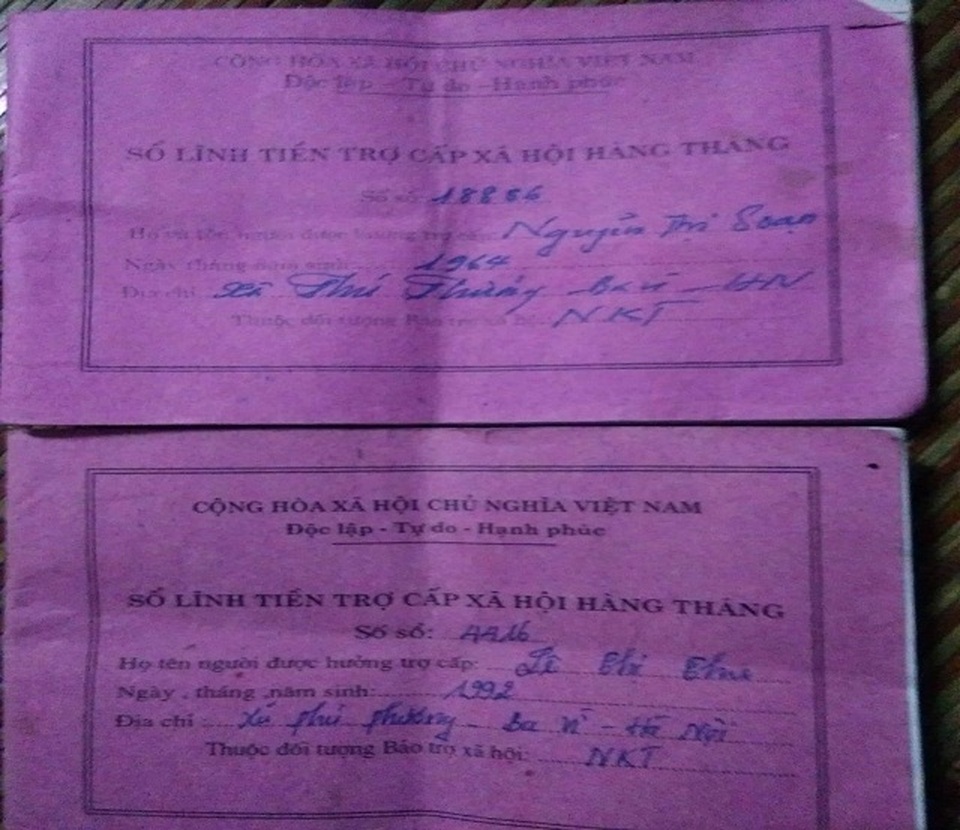 CỘNG HÒA XÃ HỘI CHỦ NGHĨA VIỆT NAM
Độc lập - Tự do - Hạnh phúc
SỔ LĨNH TIỀN TRỢ CẤP XÃ HỘI HÀNG THÁNG
Số sổ: 18856
Họ và tên người được hưởng trợ cấp: Nguyễn Thị Soạn
Ngày tháng năm sinh: 1964
Địa chỉ Xã Phú Phương Ba Vì - HN
Thuộc đối tượng Bảo trợ xã hội: NKT
CỘNG HÒA XÃ HỘI CHỦ NGHĨA VIỆT NAM
Độc lập - Tự do - Hạnh phúc
SỔ LĨNH TIỀN TRỢ CẤP XÃ HỘI HÀNG THÁNG
Số sổ:
Họ tên người được hưởng trợ cấp: Lê Thị
Ngày, tháng, năm sinh: 1992
Địa chỉ: Xã Phú Phương - Ba Vì - Hà Nội
Thuộc đối tượng Bảo trợ xã hội: NKT